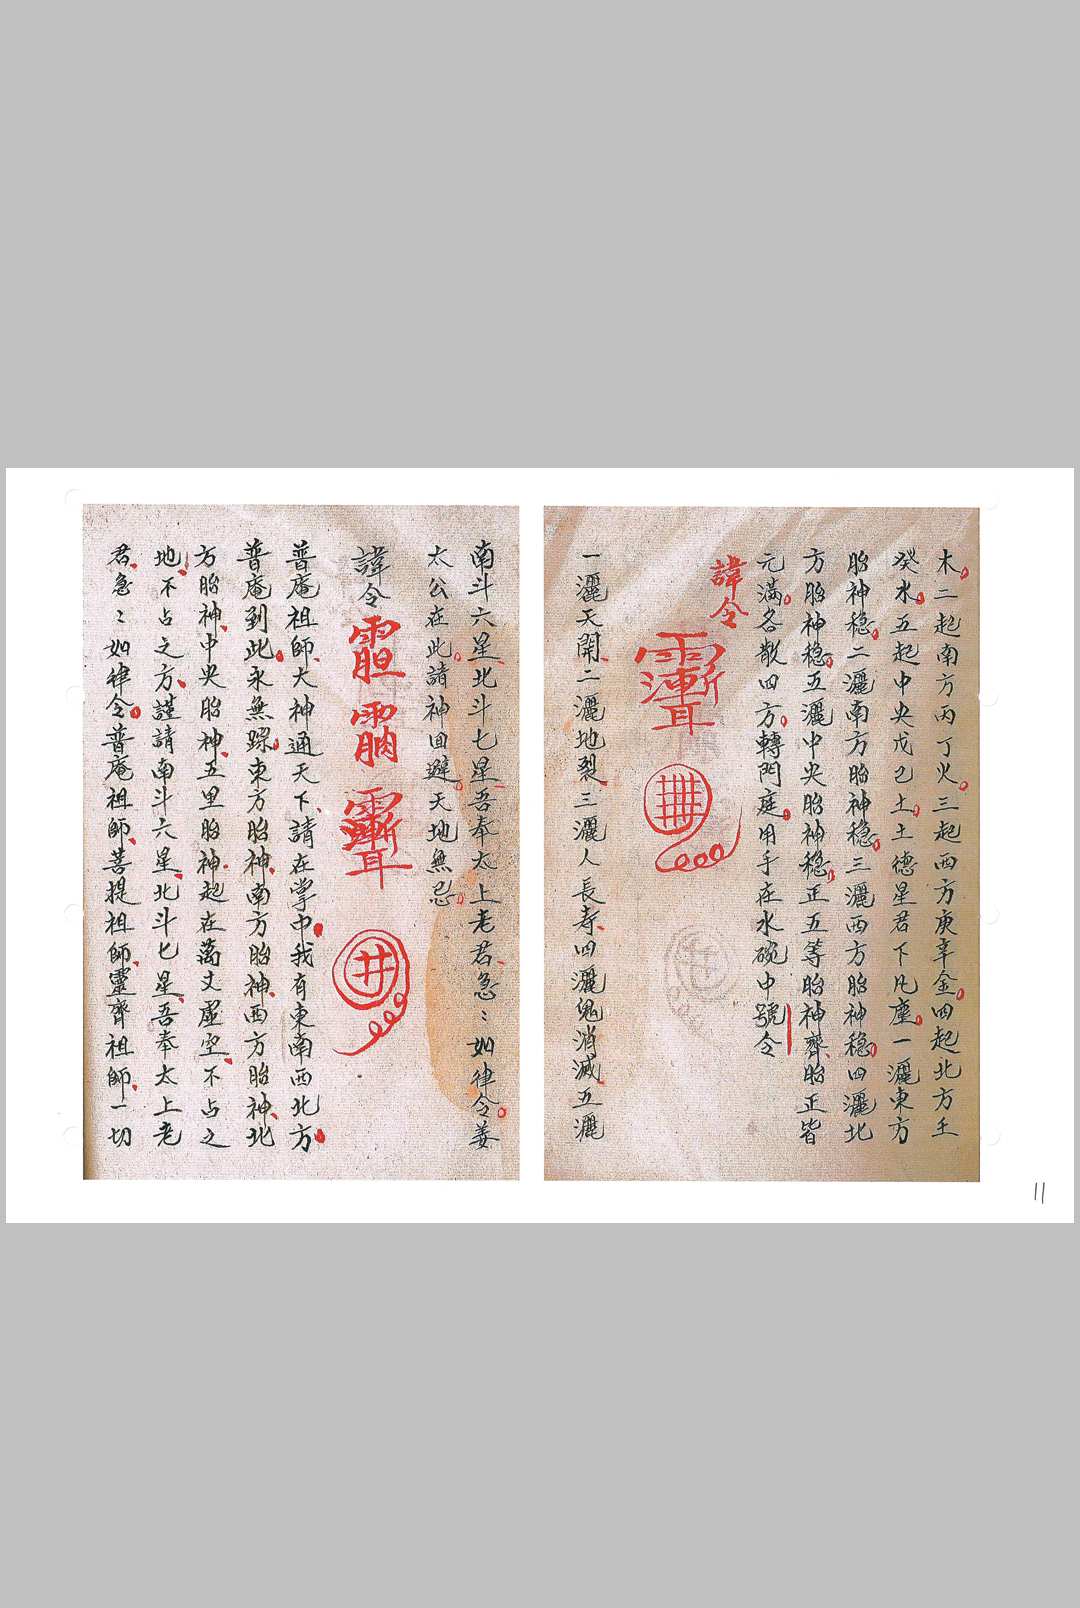 木二起南方丙丁火三起西方庚辛金四起北方壬
癸水五起中央戊己土土德星君下凡塵一灑東方
胎神穩二灑南方胎神穩三灑西方胎神穩四灑北
方胎神穩五灑中央胎神穩正五等胎神齊胎正皆
元滿各散四方轉門庭用手在水碗中號令
諱令
一灑天開二灑地裂三灑人長寿四灑鬼消滅五灑
南斗六星北斗七星吾奉太上老君急：如律令姜
太公在此請神回避天地無忌
諱令
普庵祖師大神通天下請在掌中我有東南西北方
普庵到此永無踪東方胎神南方胎神西方胎神北
方胎神中央胎神五里胎神起在萬丈虛空不占之
地不占之方謹請南斗六星北斗七星吾奉太上老
君急：如律令普庵祖師菩提祖師靈齊祖師一切
11